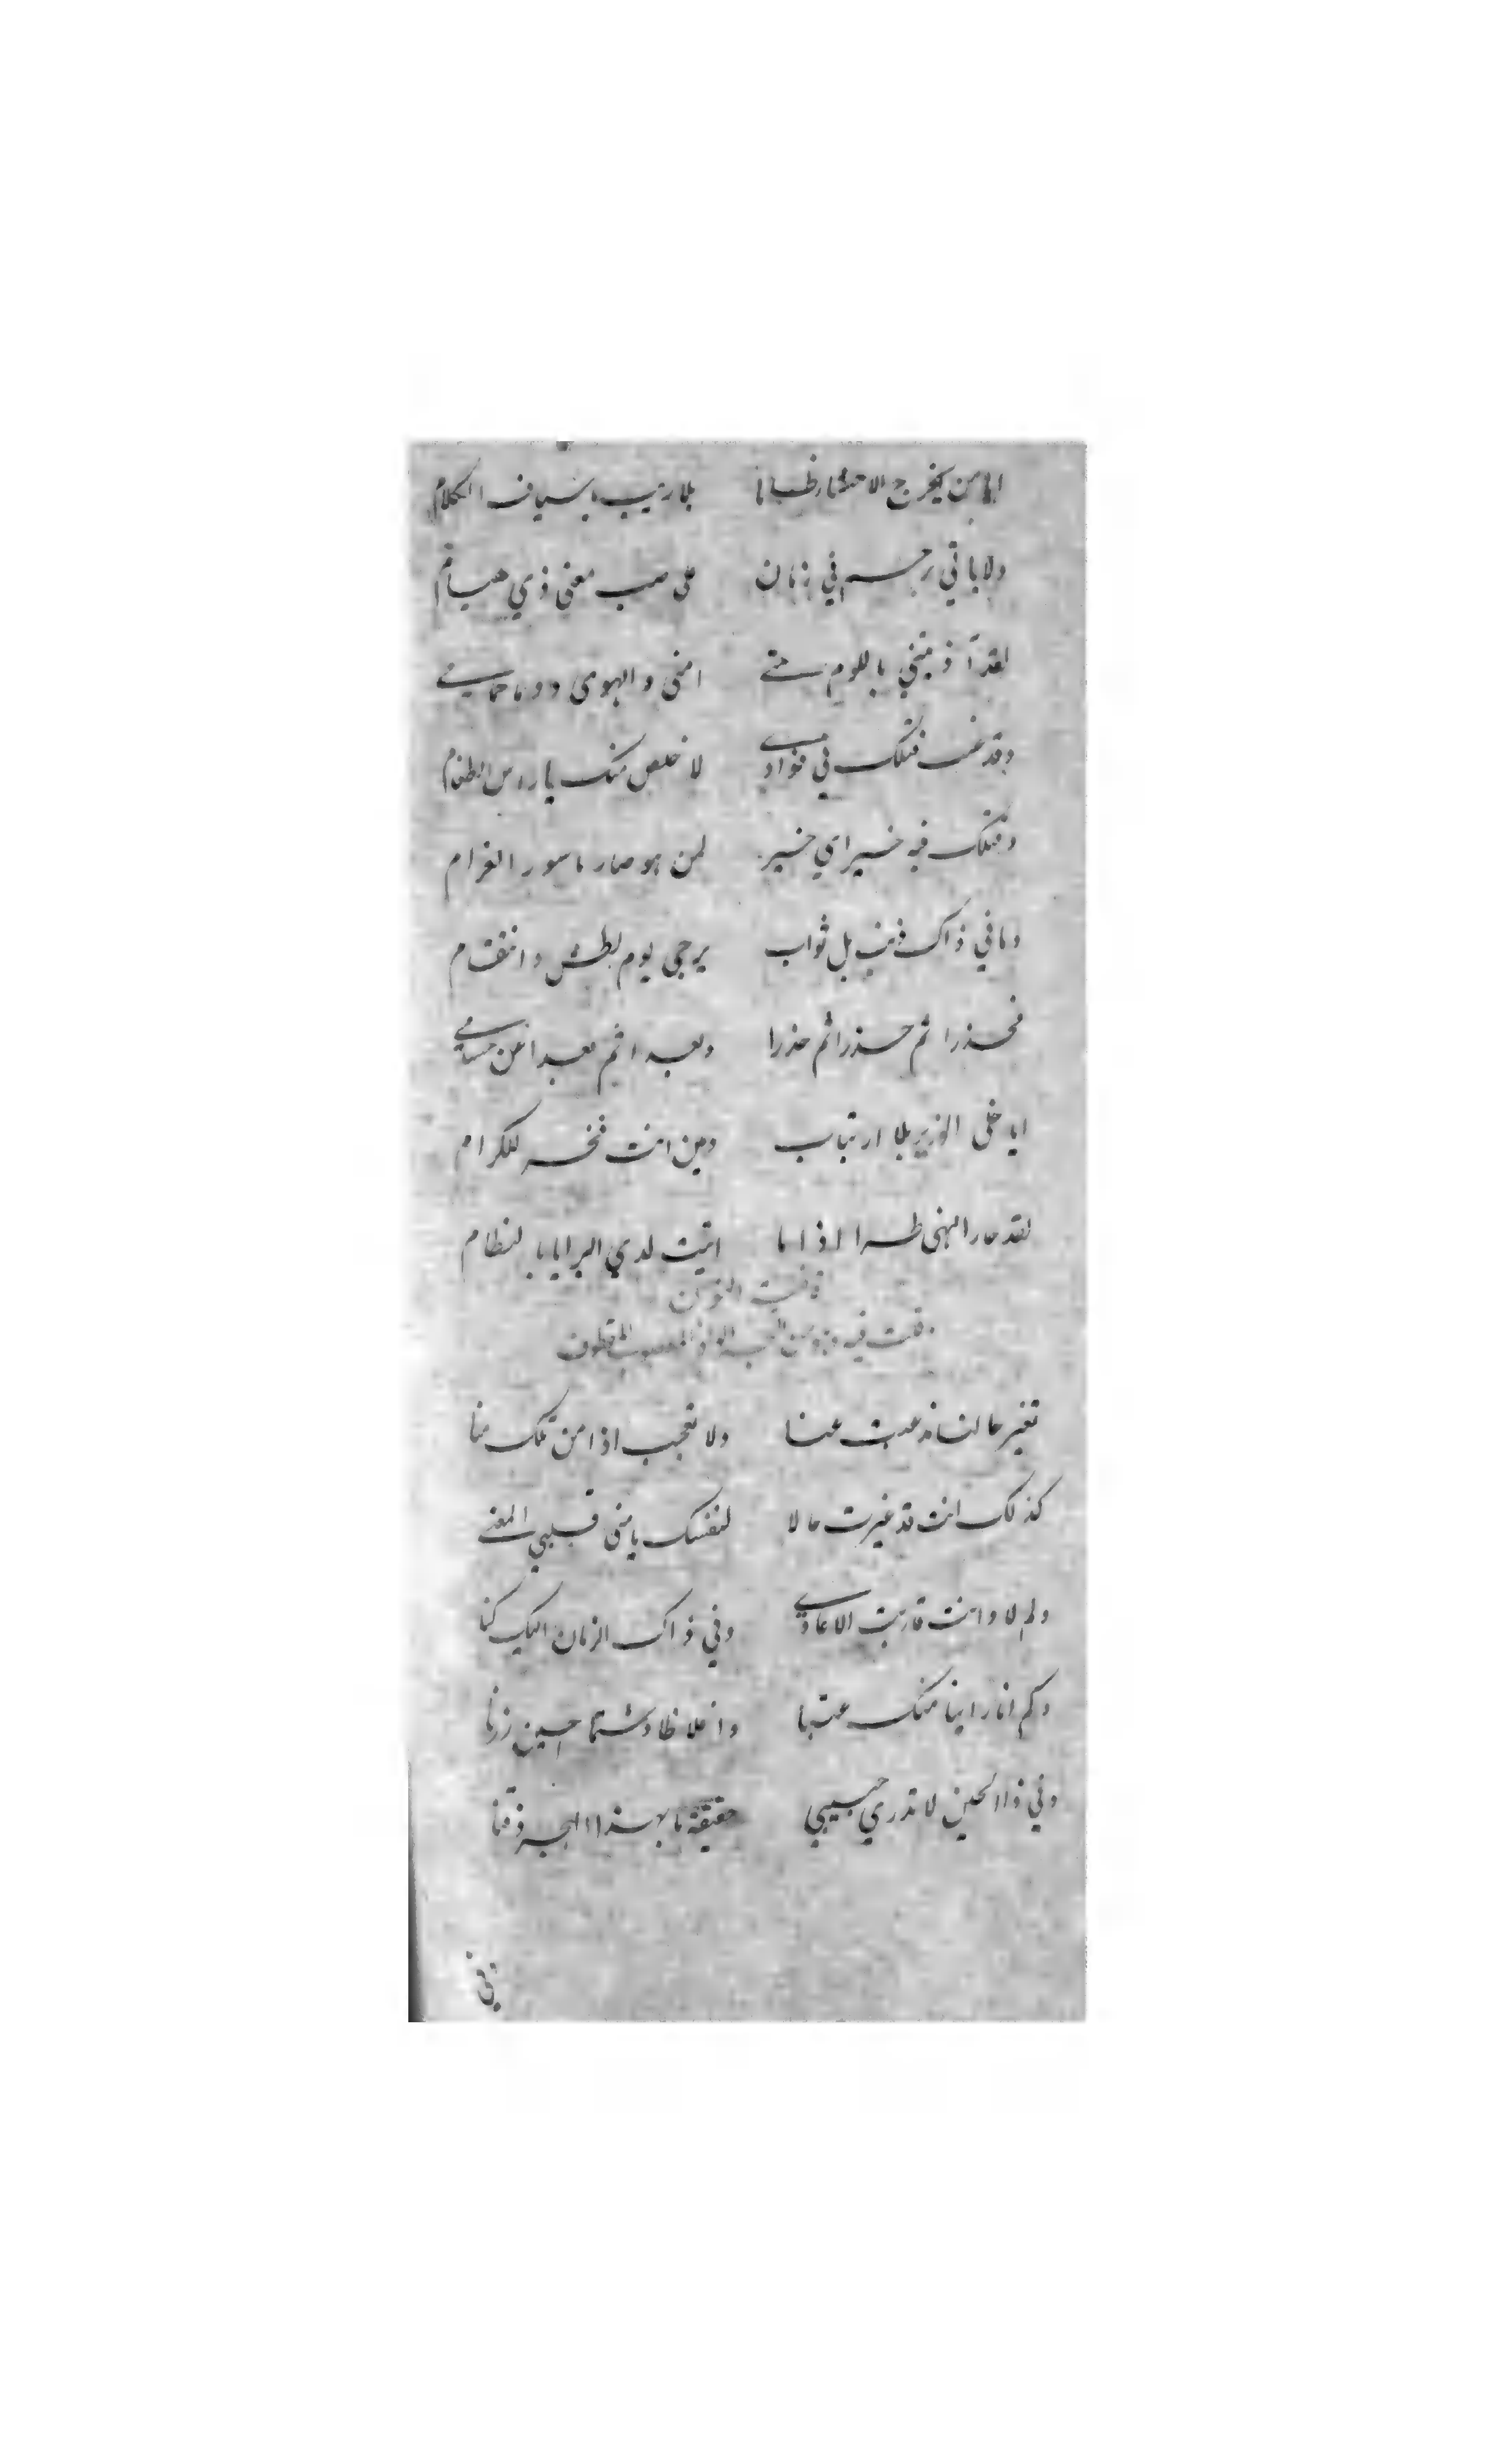 ايا من يجرح الاحشا ظلما بلا ريب باسياف الكلام
ولا ياتي برحم في زمان على صب معنى ذي هيام
لقد آذيتني باللوم حتى امنى والهوى دوما حمامي
وقد غب فتلك في فؤادي لاخلص منك يا روس الطغام
وفتلك فيه خير اي خير لمن هو صار ماسور الغرام
وما في ذاك ذنب بل ثواب يرجى يوم بطش وانتقام
فحذرا ثم حذرا ثم حذرا وبعدا ثم بعدا عن حسامي
ايا خلى العزيز بلا ارتياب ومن انت فخر للكرام
لقد حار النهى طرا اذا ما اتيت لدي البرايا بالنظام
قافية النون
قلت فيه وزو من البحر الوافر المعصوب المقطوف
تغير حالنا مذ غبت عنا ولا تعجب اذا من تلك منا
كذلك انت قد غيرت حالا لنفسك يا منى قلبي المعنى
ولم لا وانت قاربت الاعادي وفي ذاك الزمان اليك كنا
وكم انا راينا منك عتبا واغلاظا وشتما حين زرنا
وفي ذا الحين لا تدري حبيبي حقيقة ما بهذا الهجر ذقنا